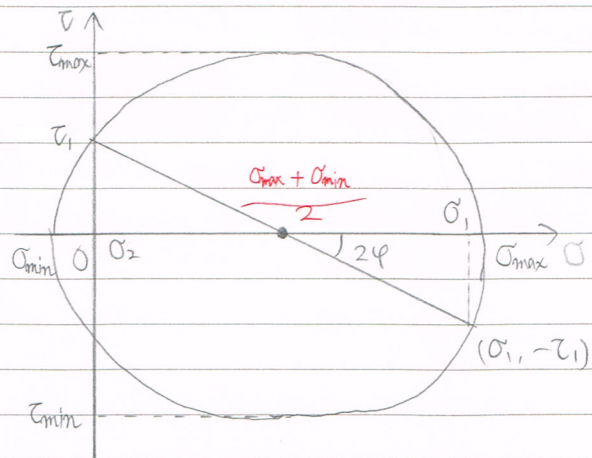 τ
τmax
τ1
σmax + σmin
2
σ1
σmin 0 σ2 2φ σmax σ
(σ1, -τ1)
τmin